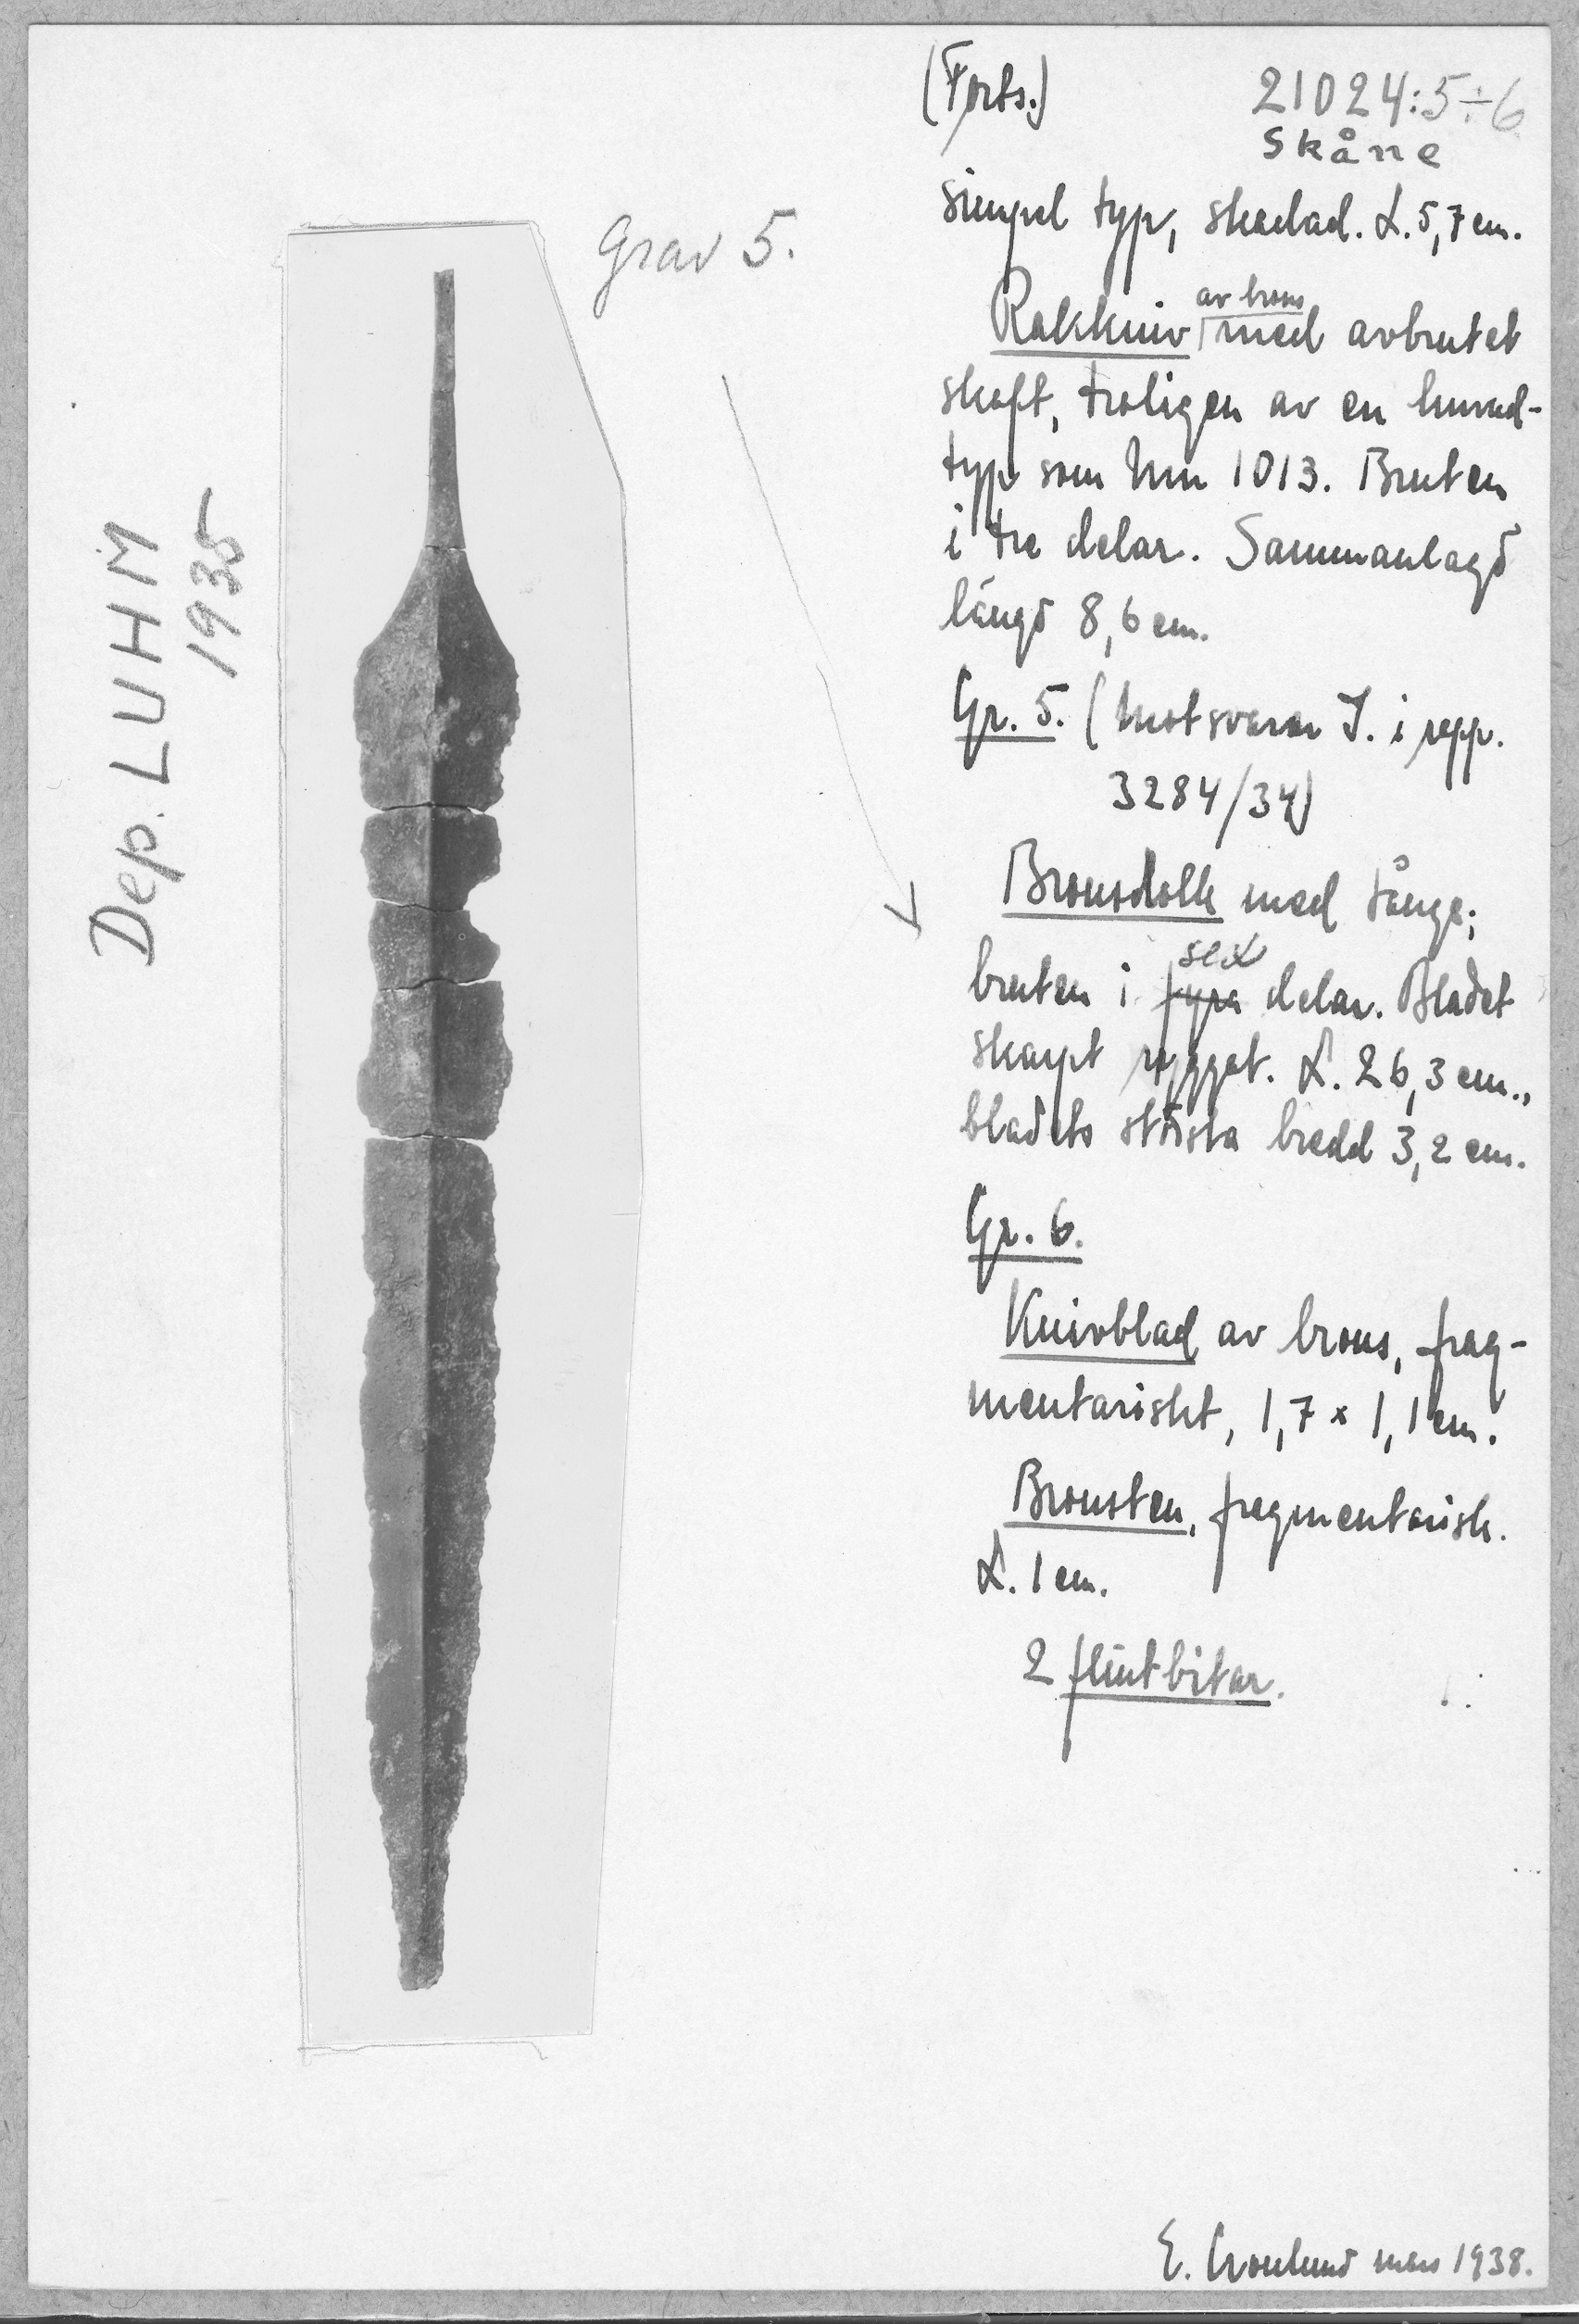 (Forts.)
21024:5÷6
Skåne
simpel typ, skadad. L. 5,7 cm.
av brons
Rakkniv med avbrutet
skaft, troligen av en huvud-
typ som Mm 1013. Bruten
i tre delar. Sammanlagd
längd 8,6 cm.
Gr. 5. (Motsvarar I. i rapp.
3284/34)
Bronsdolk med tånge;
sex
bruten i fyra delar. Bladet
skarpt ryggat. L. 26,3 cm.,
bladets största bredd 3,2 cm.
Gr. 6.
Knivblad av brons, frag-
mentariskt, 1,7 x 1,1 cm.
Bronsten, fragmentarisk.
L. 1 cm.
2 flintbitar.
Grav 5.
Dep. LUHM
1935
E. Cronlund mars 1938.